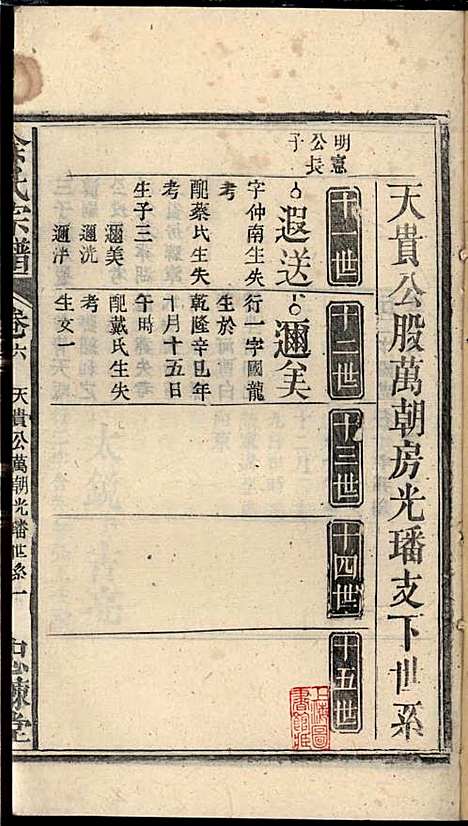 天貴公股萬朝房光璠支下世系
明憲公長子
十一世
十二世
十三世
十四世
十五世
遐送
字仲南生失考
配蔡氏生失考
生子三
邇美
邇洸
邇泮
邇美
行一字國龍
生於乾隆辛巳年十月十五日午時
配戴氏生失考
生女一
氏宗譜
卷六
天貴公萬朝光璠世系一
上海圖書館藏